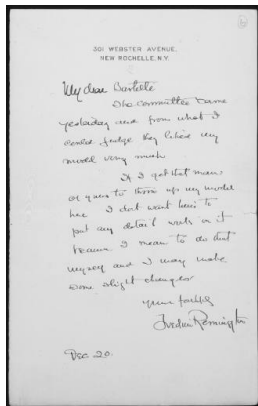 301 WEBSTER AVENUE,
NEW ROCHELLE, N.Y.
My dear Bartlett
The committee came
yesterday and from what I
could judge they liked my
model very much
If I get that man
of yours to throw up my model
here I dont want him to
put any detail work in it
because I mean to do that
myself and I may make
some slight changes
yours faithfully
Frederic Remington
Dec 20.